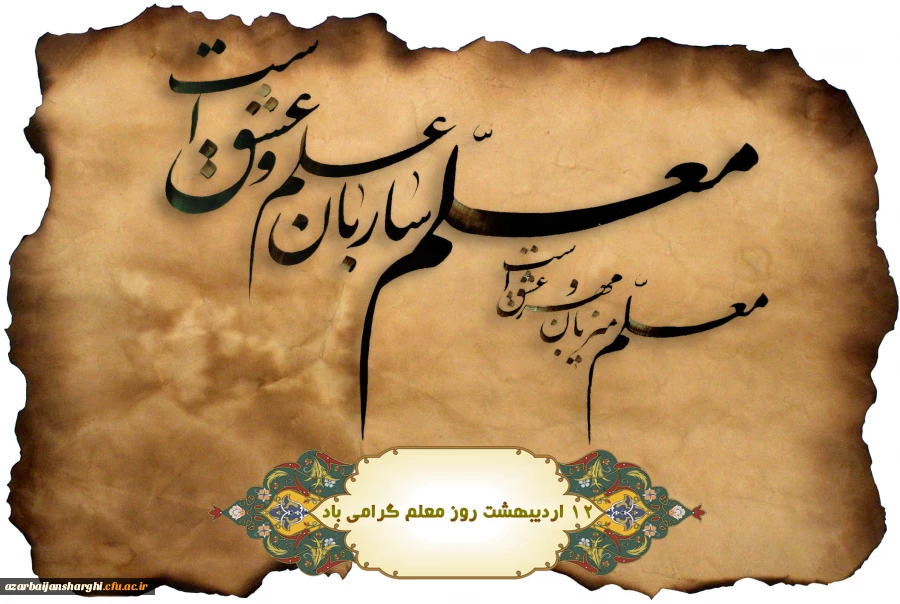 معلّم ساربان علم و عشق است
معلّم میزبان مهر و عشق است
۱۲ اردیبهشت روز معلم گرامی باد
azarbaijansharghi.cfu.ac.ir